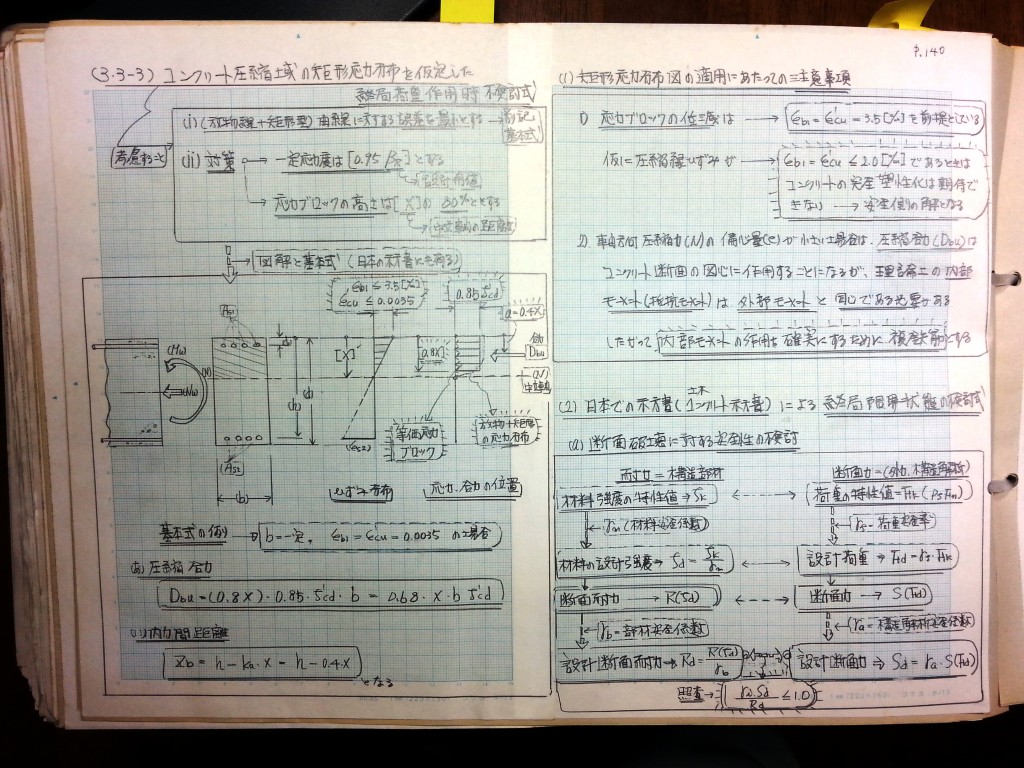 (3-3-3) コンクリート圧縮域の矩形応力分布を仮定した
終局荷重作用時の検討式
(i) (放物線+矩形型) 曲線に対する誤差を最小とする → 前記基本式
考慮すること
(ii) 対策 → 一定応力度は[0.95 βR]とする
応力ブロックの高さは[X]の80%とする
中立軸の距離
図解と基本式 (日本の示方書にも有る)
εb1 ≦ 3.5[‰]
εcu ≦ 0.0035
0.85 f'cd
a=0.4X
As1
d'
(Mu)
(Nu)
(N)
(h)
(d)
[X]
0.8X
Dbu
(N)
中立軸
(As2)
(b)
(εs2)
等価応力
ブロック
放物線+矩形型
の応力分布
ひずみ分布
応力、合力の位置
基本式の仮り → b=一定, εb1 = εcu = 0.0035 の場合
(あ) 圧縮合力
Dbu = (0.8X)・0.85・f'cd・b = 0.68・X・b f'cd
(い) 内力間距離
Zb = h − ka・X = h − 0.4・X
となる
P.140
(1) 矩形応力分布図の適用にあたっての注意事項
1) 応力ブロックの仮定は → εb1 = ε'cu = 3.5[‰]を前提としている
仮に圧縮縁ひずみが → εb1 = εcu ≦ 2.0[‰]であるときは
コンクリートの完全塑性化は期待で
きない → 安全側の解となる
2) 軸方向圧縮力(N)の偏心量(e)が小さい場合は、圧縮合力(Dbu)は
コンクリート断面の図心に作用することになるが、理論上の内部
モーメント(抵抗モーメント)は外部モーメントと同じである必要がある
したがって 内部モーメントの作用を確実にするために複鉄筋とする
(2) 日本での示方書(土木コンクリート示方書)による終局限界状態の検討式
(a) 断面破壊に対する安全性の検討
耐力=構造部材
断面力=(外力、構造解析)
材料強度の特性値 → fk
荷重の特性値=Fk (ρfFn)
γm (材料安全係数)
γf=荷重安全率
材料の設計強度 → fd = fk/γm
設計荷重 → Fd = γf・Fk
断面耐力 → R(fd)
断面力 → S(Fd)
γb=部材安全係数
γa=構造解析安全係数
設計断面耐力 → Rd = R(fd)/γb
設計断面力 → Sd = γa・S(Fd)
照査 → γi・Sd/Rd ≦ 1.0